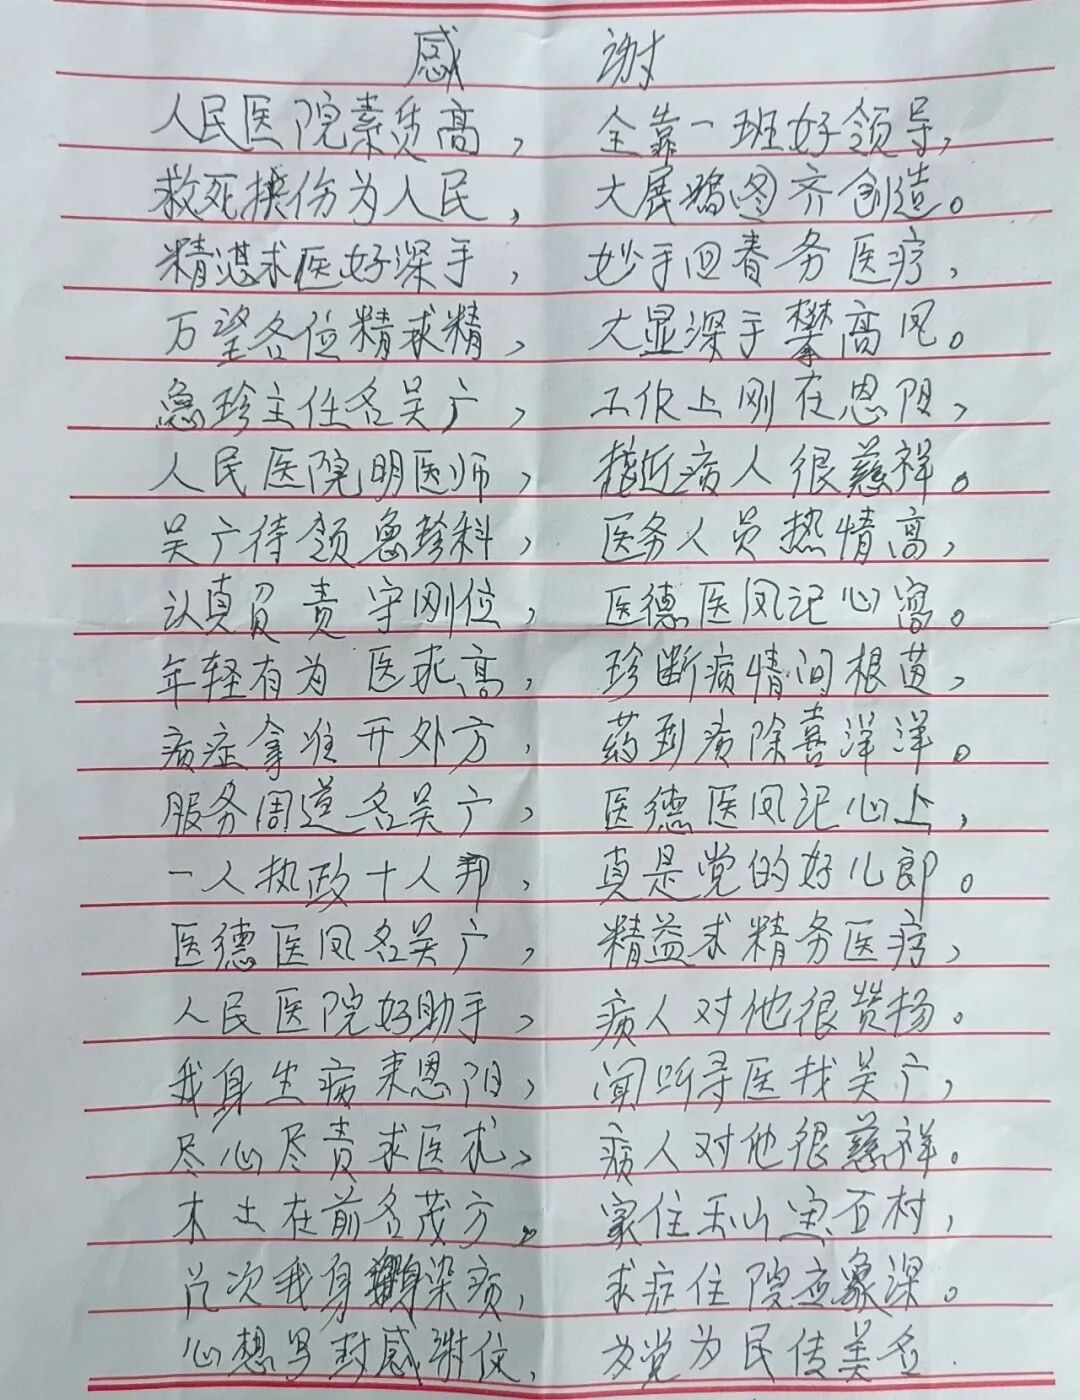 感谢
人民医院素质高，全靠一班好领导，
救死扶伤为人民，大展鸿图齐创造。
精湛求医好深手，妙手回春务医疗，
万望各位精求精，大显深手攀高风。
急珍主任名吴广，工作上刚在恩阳，
人民医院明医师，接近病人很慈祥。
吴广待领急珍科，医务人员热情高，
认真负责守刚位，医德医风记心窝。
年轻有为医术高，珍断病情问根苗，
病症拿准开处方，药到病除喜洋洋。
服务周道名吴广，医德医风记心上，
一人执政十人邦，真是党的好儿郎。
医德医风名吴广，精益求精务医疗，
人民医院好助手，病人对他很赞扬。
我身生病来恩阳，闻听寻医找吴广，
尽心尽责求医术，病人对他很慈祥。
木土在前名茂方，家住玉山宝石村，
几次我身染病，求症住院应象深。
心想写封感谢信，为党为民传美名.